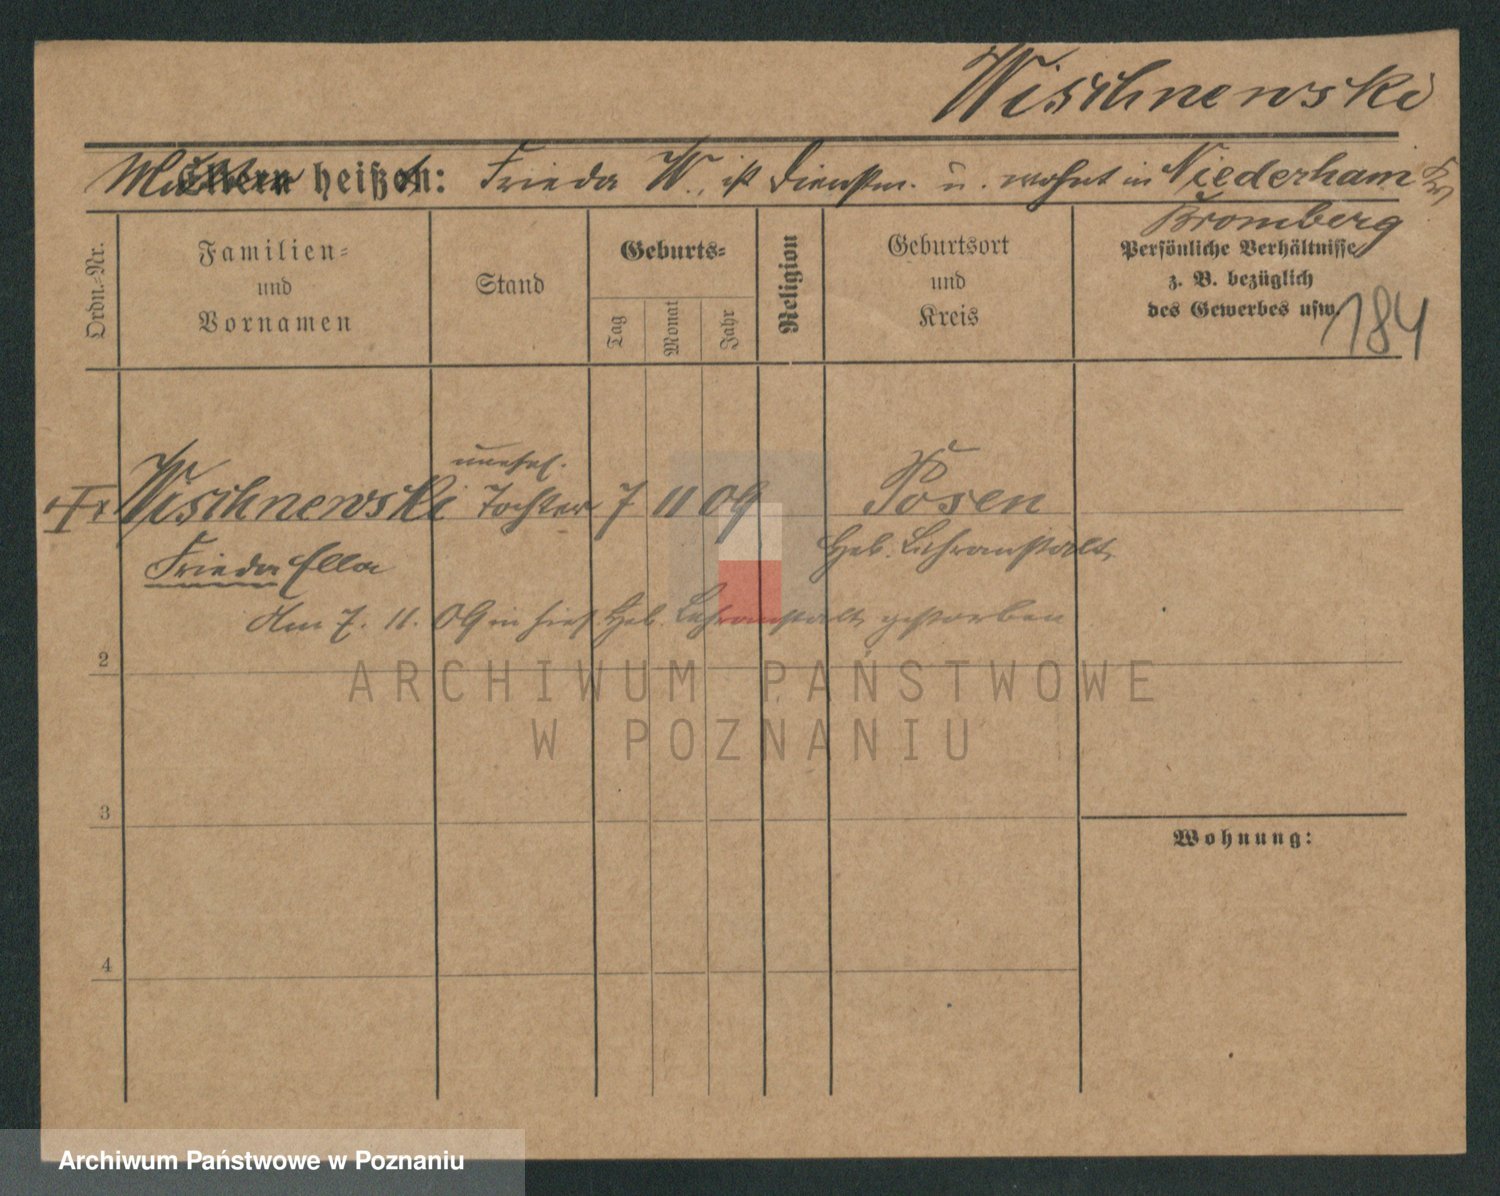 Wischnewski
Mutter heißt: Frieda W., ist Dienstm. u. wohnt in Niederheim Kr.
Bromberg
Ordn.-Nr.
Familien-
und
Vornamen
Stand
Geburts-
Tag
Monat
Jahr
Religion
Geburtsort
und
Kreis
Persönliche Verhältnisse
z. B. bezüglich
des Gewerbes usw.
184
unehel.
Wischnewski Tochter 7 11 09 Posen
Heb. Lehranstalt
Frieda Ella
Am 7. 11. 09 in hies. Heb. Lehranstalt gestorben
2
ARCHIWUM PAŃSTWOWE
W POZNANIU
3
Wohnung:
4
Archiwum Państwowe w Poznaniu